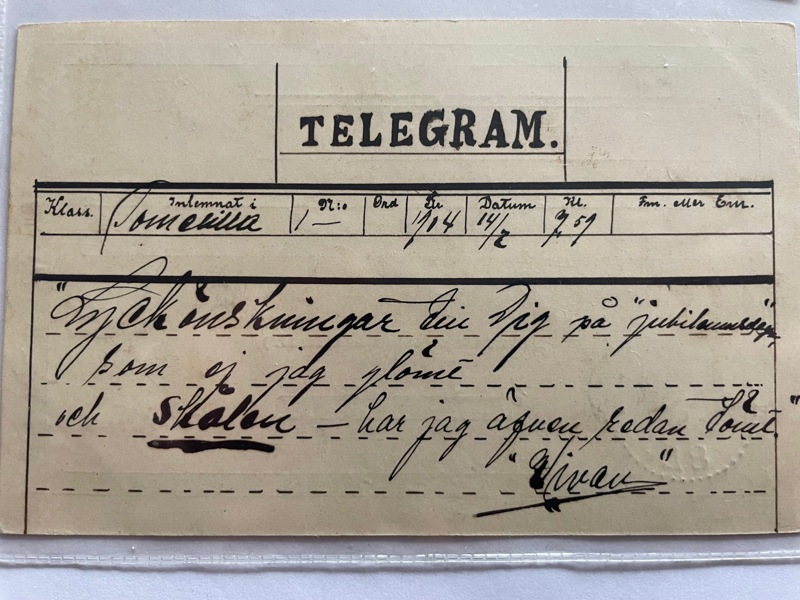 TELEGRAM.
Klass. Inlemnat i Nr:o Ord År Datum Kl. Fm. eller Em.
Tomelilla 1 — 1904 14/2 9,59
"Lyckönskningar till Dig på "jubileumsdagen"
som ej jag glömt
och skålen — har jag äfven redan tömt."
"Vivan"